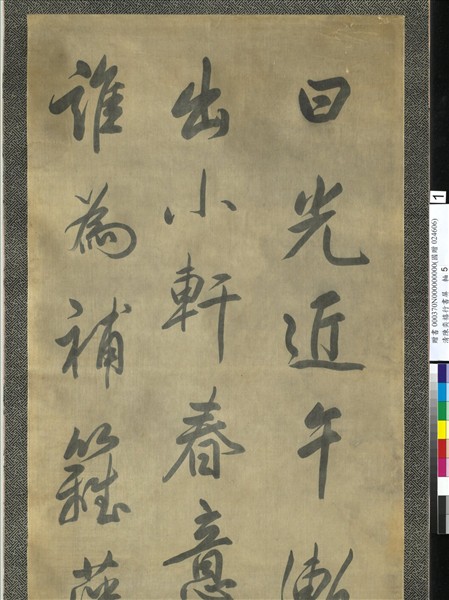 日光近午漸
出小軒春意
誰為補籬
1
贈書 000370N000000000(國贈 024606)
清陳奕禧行書屏 軸 5